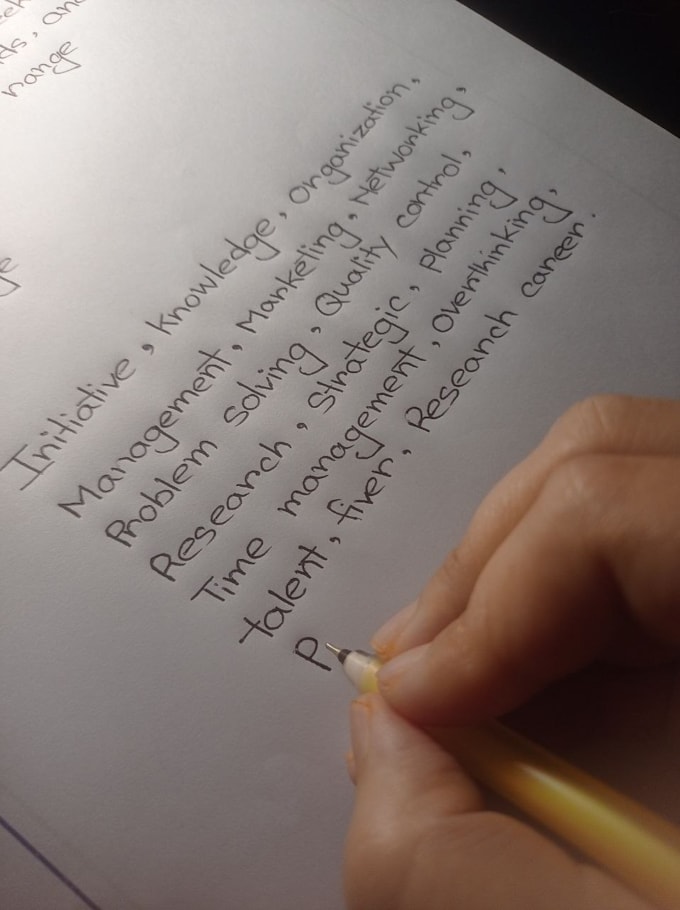 ds, an
range
ge
Initiative, knowledge, Organization,
Management, Marketing, Networking,
Problem solving, Quality control,
Research, Strategic, Planning,
Time management, overthinking,
talent, fiver, Research career.
P